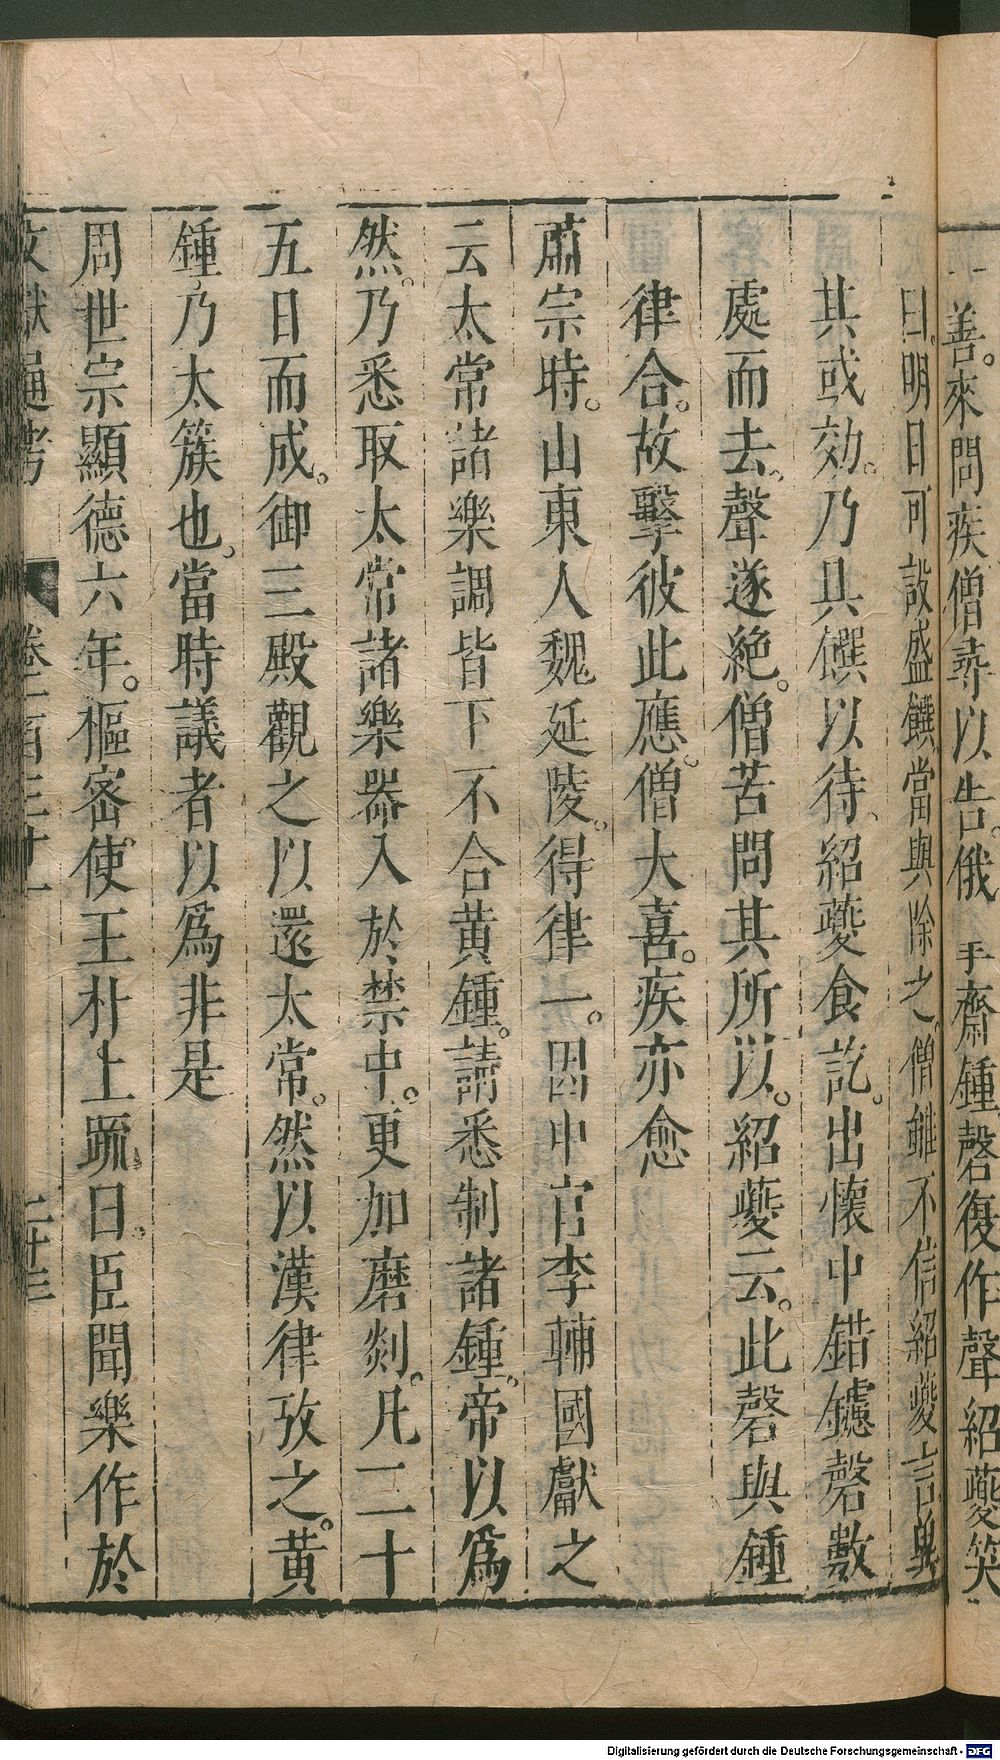 善。來問疾僧尋以告。俄 手齋鍾磬復作聲紹夔笑
曰。明日可設盛饌。當與除之。僧雖不信紹夔言與
其或効。乃具饌以待。紹夔食訖。出懷中錯鑢磬數
處而去。聲遂絶。僧苦問其所以。紹夔云。此磬與鍾
律合。故擊彼此應。僧大喜。疾亦愈
肅宗時。山東人魏延陵。得律一。因中官李輔國獻之
云太常諸樂調皆下不合黄鍾。請悉制諸鍾。帝以爲
然。乃悉取太常諸樂器入於禁中。更加磨剡。凡二十
五日而成。御三殿觀之以還太常。然以漢律攷之。黄
鍾乃太簇也。當時議者以爲非是
周世宗顯德六年。樞密使王朴上䟽曰。臣聞樂作於
文獻通考 卷一百三十一 二十三
Digitalisierung gefördert durch die Deutsche Forschungsgemeinschaft - DFG